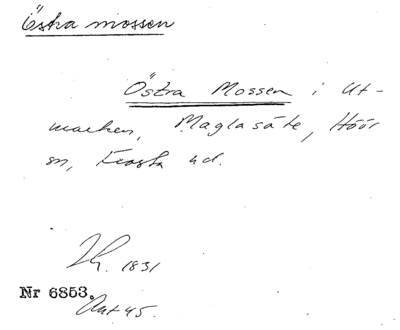 Östra mossen
Östra Mossen i Ut-
marken, Maglasäte, Höör
sn, Frosta hd.
1831
Nr 6853.
Akt 45.